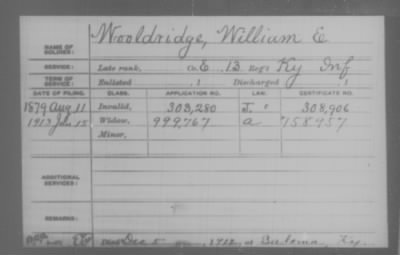 NAME OF SOLDIER: Wooldridge, William E
SERVICE: Late rank, Co. E. 13 Reg't Ky Inf
TERM OF SERVICE: Enlisted , 1 Discharged , 1
DATE OF FILING. CLASS. APPLICATION NO. LAW. CERTIFICATE NO.
1879 Aug 11 Invalid, 303,280 J. " 308,906
1913 Jan 15 Widow, 999,767 a 758957
Minor,
ADDITIONAL SERVICES:
REMARKS:
Died Dec 5 1912, at Buloma, Ky.